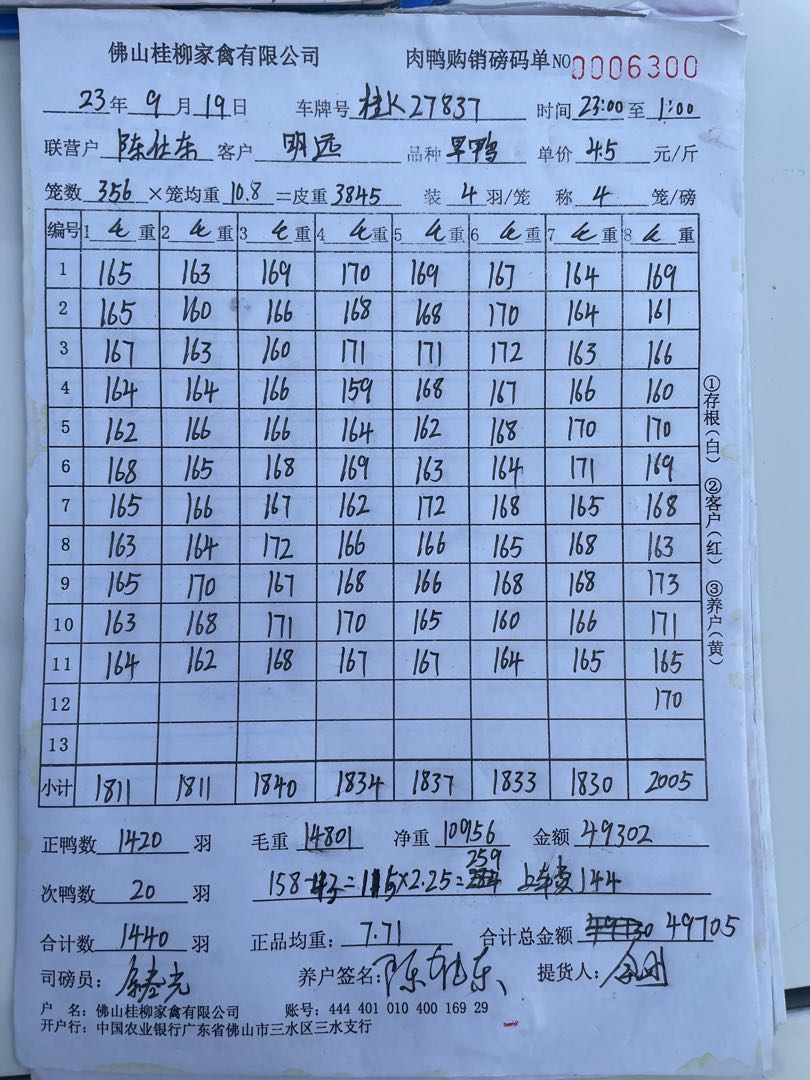 佛山桂柳家禽有限公司 肉鸭购销磅码单 NO 0006300
23年 9月 19日 车牌号 桂K27837 时间 23:00 至 1:00
联营户 陈仕东 客户 明远 品种 旱鸭 单价 4.5 元/斤
笼数 356 ×笼均重 10.8 =皮重 3845 装 4 羽/笼 称 4 笼/磅
编号 1 毛 重 2 毛 重 3 毛 重 4 毛 重 5 毛 重 6 毛 重 7 毛 重 8 毛 重
1 165 163 169 170 169 167 164 169
2 165 160 166 168 168 170 164 161
3 167 163 160 171 171 172 163 166
4 164 164 166 159 168 167 166 160
5 162 166 166 164 162 168 170 170
6 168 165 168 169 163 164 171 169
7 165 166 167 162 172 168 165 168
8 163 164 172 166 166 165 168 163
9 165 170 167 168 166 168 168 173
10 163 168 171 170 165 160 166 171
11 164 162 168 167 167 164 165 165
12 170
13
小计 1811 1811 1840 1834 1837 1833 1830 2005
正鸭数 1420 羽 毛重 14801 净重 10956 金额 49302
次鸭数 20 羽 158-43=115×2.25=259 上车费 144
合计数 1440 羽 正品均重: 7.71 合计总金额 49705
司磅员: 养户签名: 陈仕东 提货人:
户 名: 佛山桂柳家禽有限公司 账号: 444 401 010 400 169 29
开户行: 中国农业银行广东省佛山市三水区三水支行
①存根(白) ②客户(红) ③养户(黄)